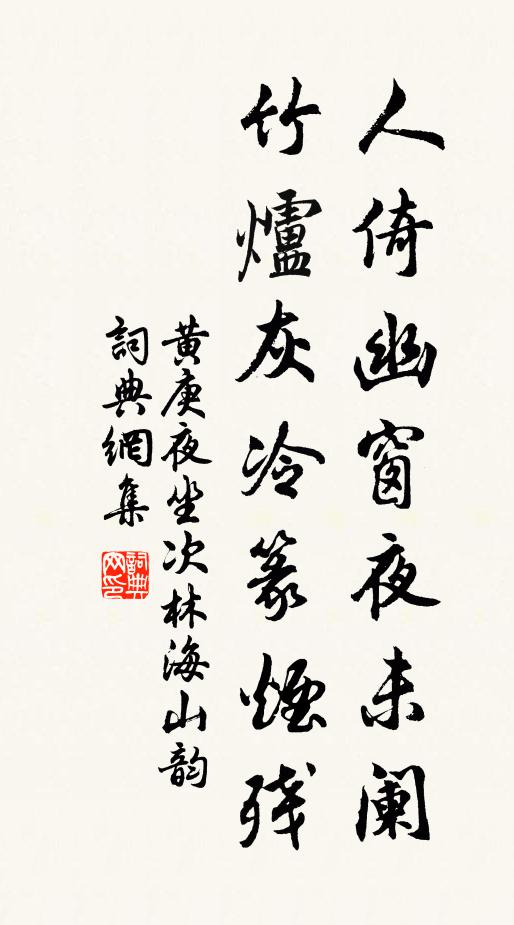 人倚幽窗夜未阑
竹爐灰冷篆煙残
黄庚夜坐次林海山韵
詞典網集
詞典網印